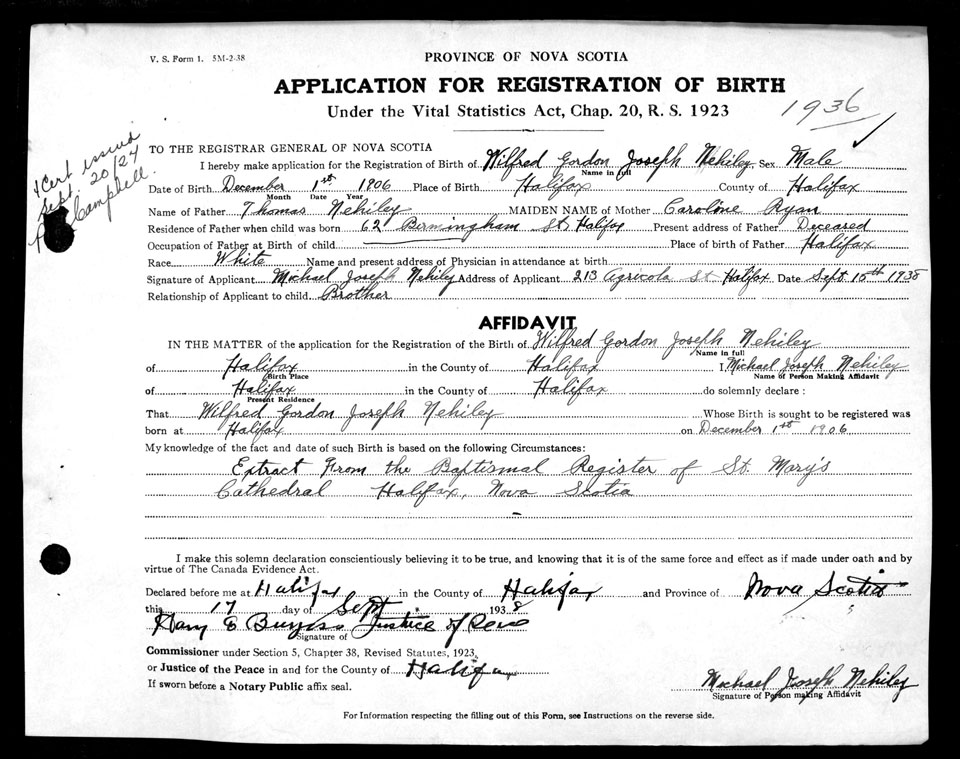 V. S. Form 1. 5M-2-38
PROVINCE OF NOVA SCOTIA
APPLICATION FOR REGISTRATION OF BIRTH
Under the Vital Statistics Act, Chap. 20, R. S. 1923
1936
Cert issued
Sept. 20/24
Campbell.
TO THE REGISTRAR GENERAL OF NOVA SCOTIA
I hereby make application for the Registration of Birth of Wilfred Gordon Joseph Nehiley Sex Male
Name in full
Date of Birth December 1st 1906 Place of Birth Halifax County of Halifax
Month Date Year
Name of Father Thomas Nehiley MAIDEN NAME of Mother Caroline Ryan
Residence of Father when child was born 62 Birmingham St Halifax Present address of Father Deceased
Occupation of Father at Birth of child Place of birth of Father Halifax
Race White Name and present address of Physician in attendance at birth
Signature of Applicant Michael Joseph Nehiley Address of Applicant 213 Agricola St Halifax Date Sept 15th 1938
Relationship of Applicant to child Brother
AFFIDAVIT
IN THE MATTER of the application for the Registration of the Birth of Wilfred Gordon Joseph Nehiley
Name in full
of Halifax in the County of Halifax I, Michael Joseph Nehiley
Birth Place Name of Person Making Affidavit
of Halifax in the County of Halifax do solemnly declare :
Present Residence
That Wilfred Gordon Joseph Nehiley Whose Birth is sought to be registered was
born at Halifax on December 1st 1906
My knowledge of the fact and date of such Birth is based on the following Circumstances:
Extract From the Baptismal Register of St. Mary's
Cathedral Halifax, Nova Scotia
I make this solemn declaration conscientiously believing it to be true, and knowing that it is of the same force and effect as if made under oath and by
virtue of The Canada Evidence Act.
Declared before me at Halifax in the County of Halifax and Province of Nova Scotia
this 17 day of Sept 1938
Harry E Burgess Justice of Peace
Signature of
Commissioner under Section 5, Chapter 38, Revised Statutes, 1923,
or Justice of the Peace in and for the County of Halifax
If sworn before a Notary Public affix seal.
Michael Joseph Nehiley
Signature of Person making Affidavit
For Information respecting the filling out of this Form, see Instructions on the reverse side.